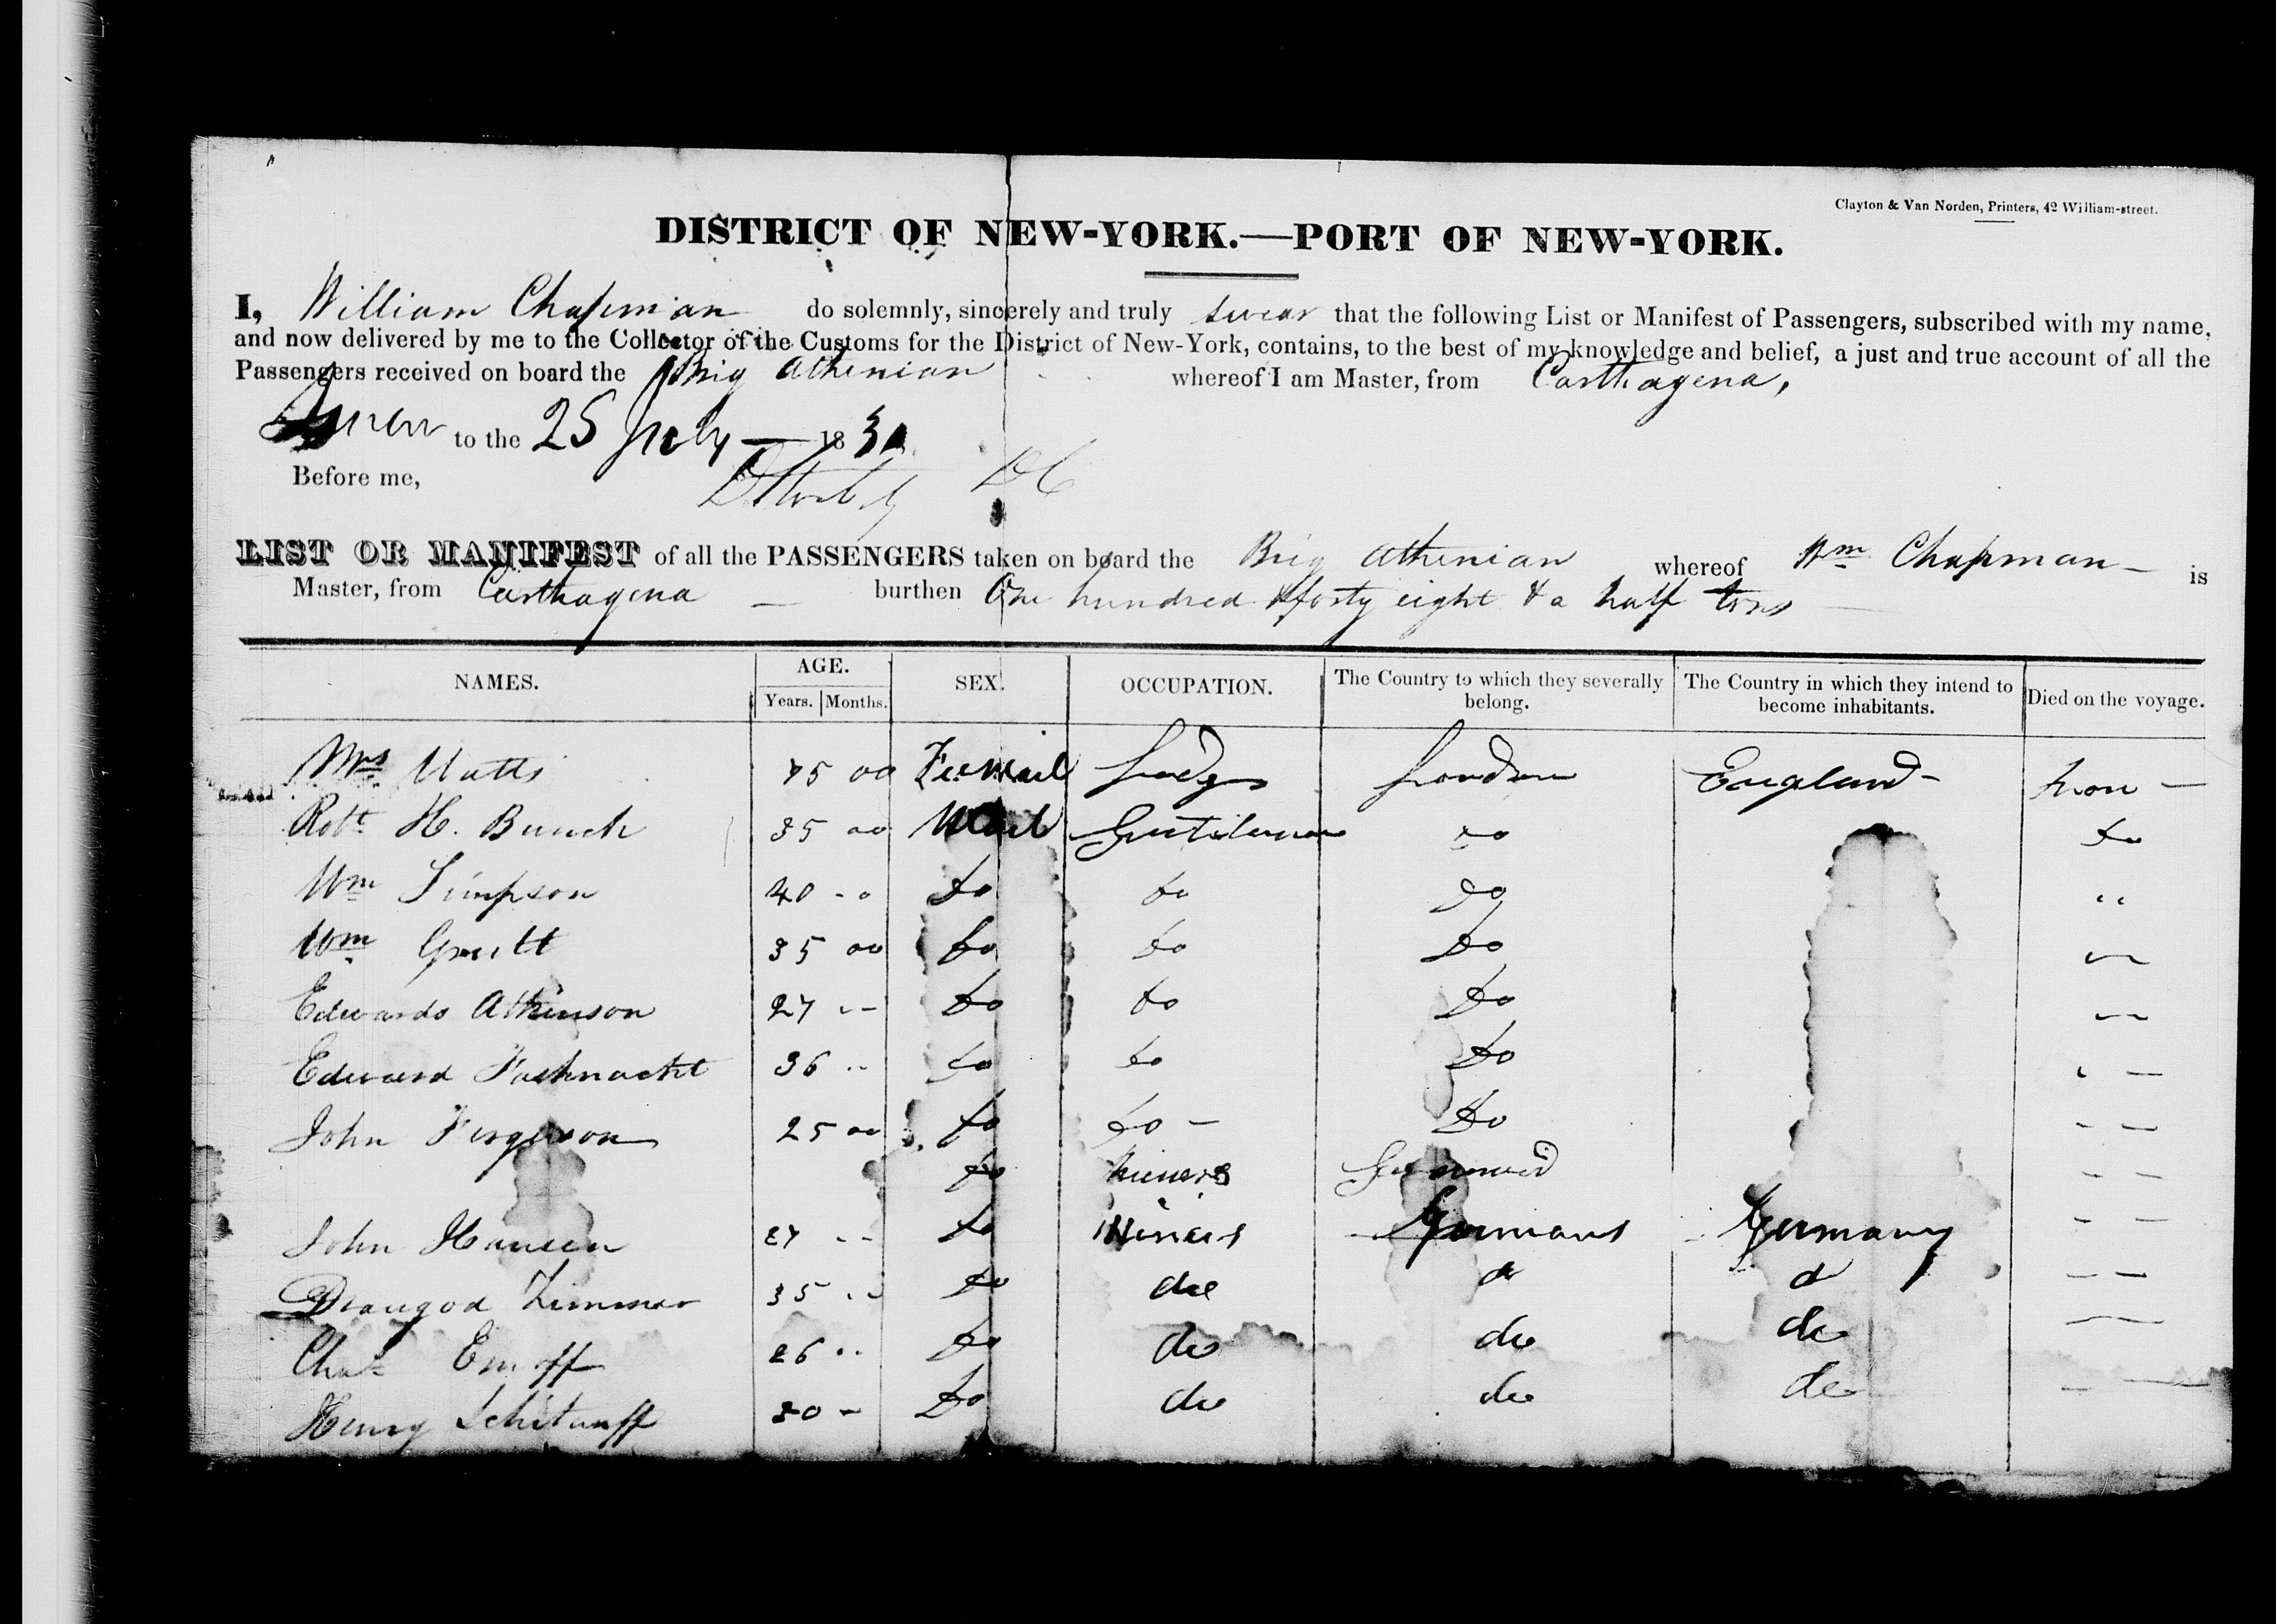 Clayton & Van Norden, Printers, 42 William-street.
DISTRICT OF NEW-YORK.—PORT OF NEW-YORK.
I, William Chapman do solemnly, sincerely and truly swear that the following List or Manifest of Passengers, subscribed with my name,
and now delivered by me to the Collector of the Customs for the District of New-York, contains, to the best of my knowledge and belief, a just and true account of all the
Passengers received on board the Brig Athenian whereof I am Master, from Carthagena,
Sworn to the 25 July — 183
Before me,
LIST OR MANIFEST of all the PASSENGERS taken on board the Brig Athenian whereof Wm Chapman — is
Master, from Carthagena — burthen One hundred & forty eight & a half tons
NAMES. AGE. SEX. OCCUPATION. The Country to which they severally belong. The Country in which they intend to become inhabitants. Died on the voyage.
Years. Months.
Mrs Watts 45 00 Femail Ladys London England — non —
Robt H. Bunch 35 00 Mail Gentilman do do
Wm Simpson 40 - 0 do do do "
Wm 35 00 do do do "
Edwards Atkinson 27 -- do do do --
Edward Fachnacht 36 .. do do do --
John Ferguson 25 00 do do — do --
do Miners --
John Hansen 27 -- do Miners Germans Germany --
Zimmer 35 .. do do d d --
Chas Emoff 26 .. do do do do --
Henry 30 - do do do do --